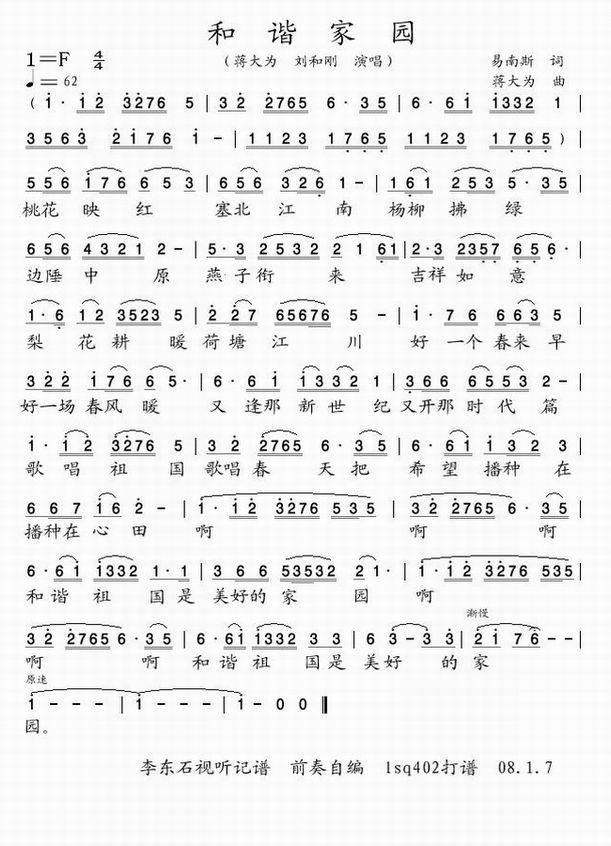 和谐家园
1=F 4/4 （蒋大为 刘和刚 演唱） 易南斯 词
♩=62 蒋大为 曲
（1· 12 3276 5 | 32 2765 6· 35 | 6· 61 1332 1 |
3563 2176 1 - | 1123 1765 1123 1765） |
556 176 653 | 656 326 1- | 161 253 5· 35 |
桃花 映 红 塞北 江 南 杨柳 拂 绿
656 4321 2- | 5·3 2532 2 1 61 | 2·3 2357 656· |
边陲 中 原 燕子衔 来 吉祥如 意
1·6 122 3523 5 | 2 27 65676 5 - | 1· 76 663 3 |
梨 花 耕 暖 荷塘 江 川 好 一个 春来 早
322 176 6· | 6· 61 1332 1 | 366 6553 2- |
好一场 春风 暖 又 逢那 新 世 纪 又开那 时 代 篇
1· 12 3276 5 | 32 2765 6· 35 | 6 61 132 3 |
歌 唱 祖 国 歌唱 春 天 把 希 望 播种 在
667 16 2- | 1· 12 3276 535 | 32 2765 6· 35 |
播种在 心 田 啊 啊 啊
6·61 1332 1·1 | 366 53532 21· | 1·12 3276 535 |
和 谐 祖 国 是 美好的 家 园 啊
渐慢
32 2765 6· 35 | 6· 61 1332 33 | 63- 33 | 217 6-- |
啊 啊 和 谐 祖 国是 美好 的 家
原速
1--- | 1--- | 1-00 ‖
园。
李东石视听记谱 前奏自编 lsq402打谱 08.1.7